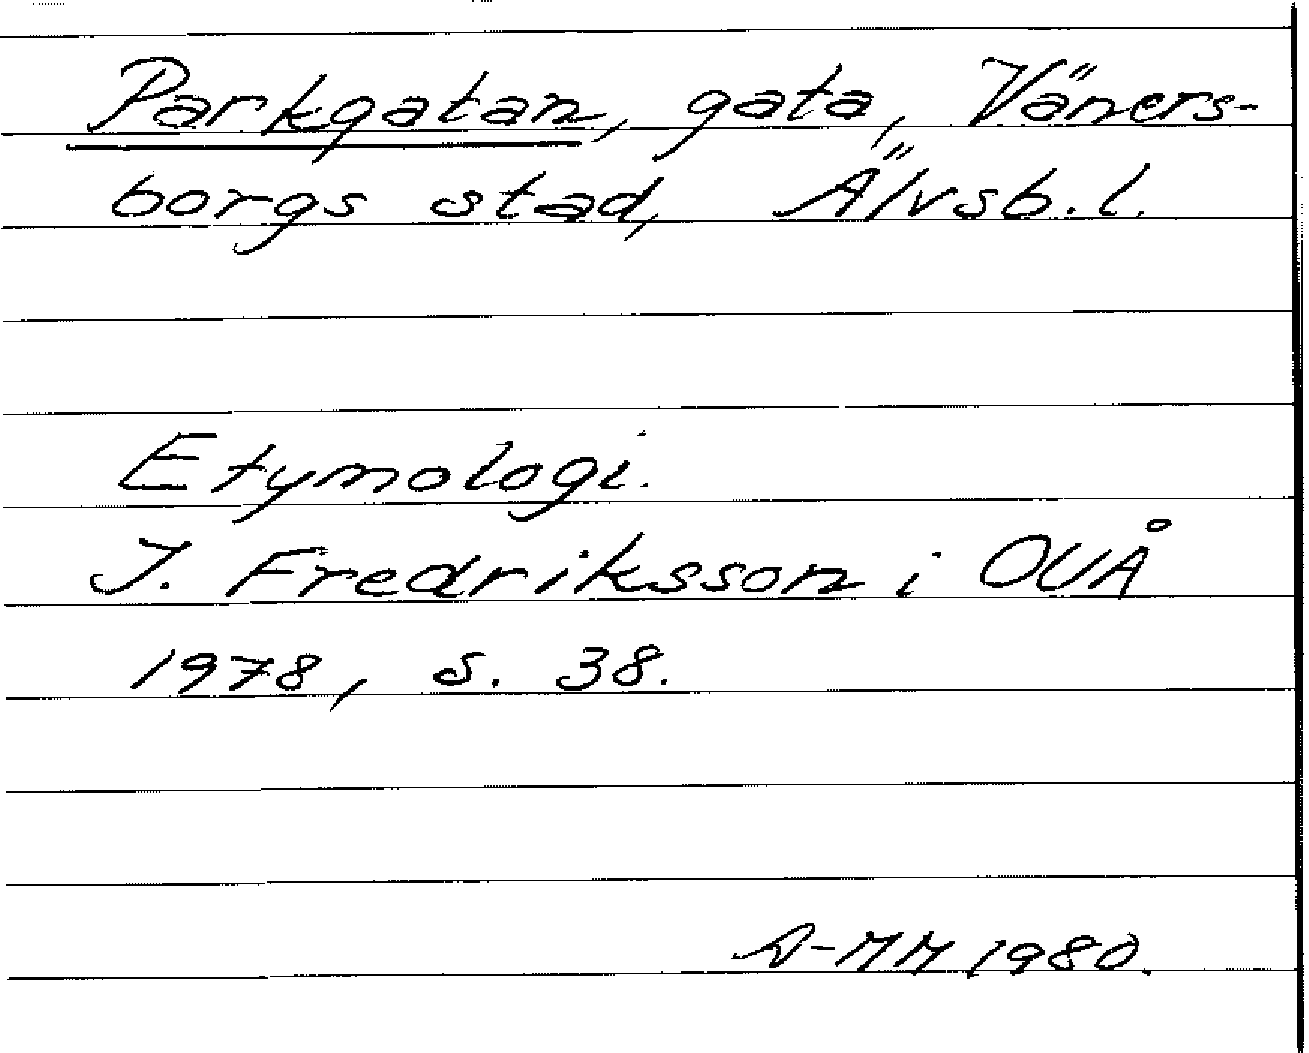 Parkgatan, gata, Väners-
borgs stad, Älvsb. l.
Etymologi.
I. Fredriksson i OUÅ
1978, s. 38.
A-MM 1980.